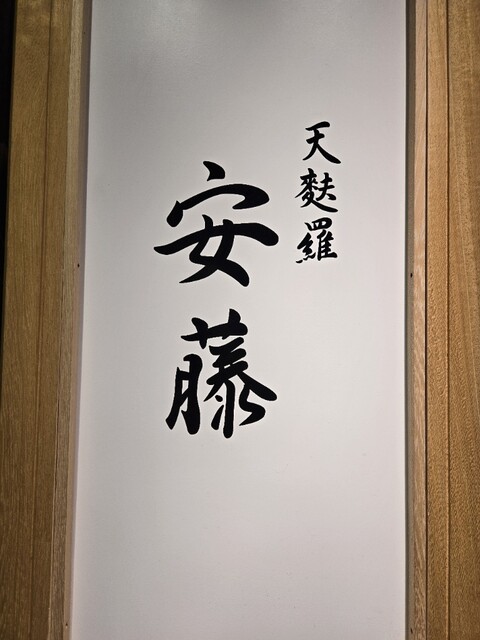 天麩羅
安藤